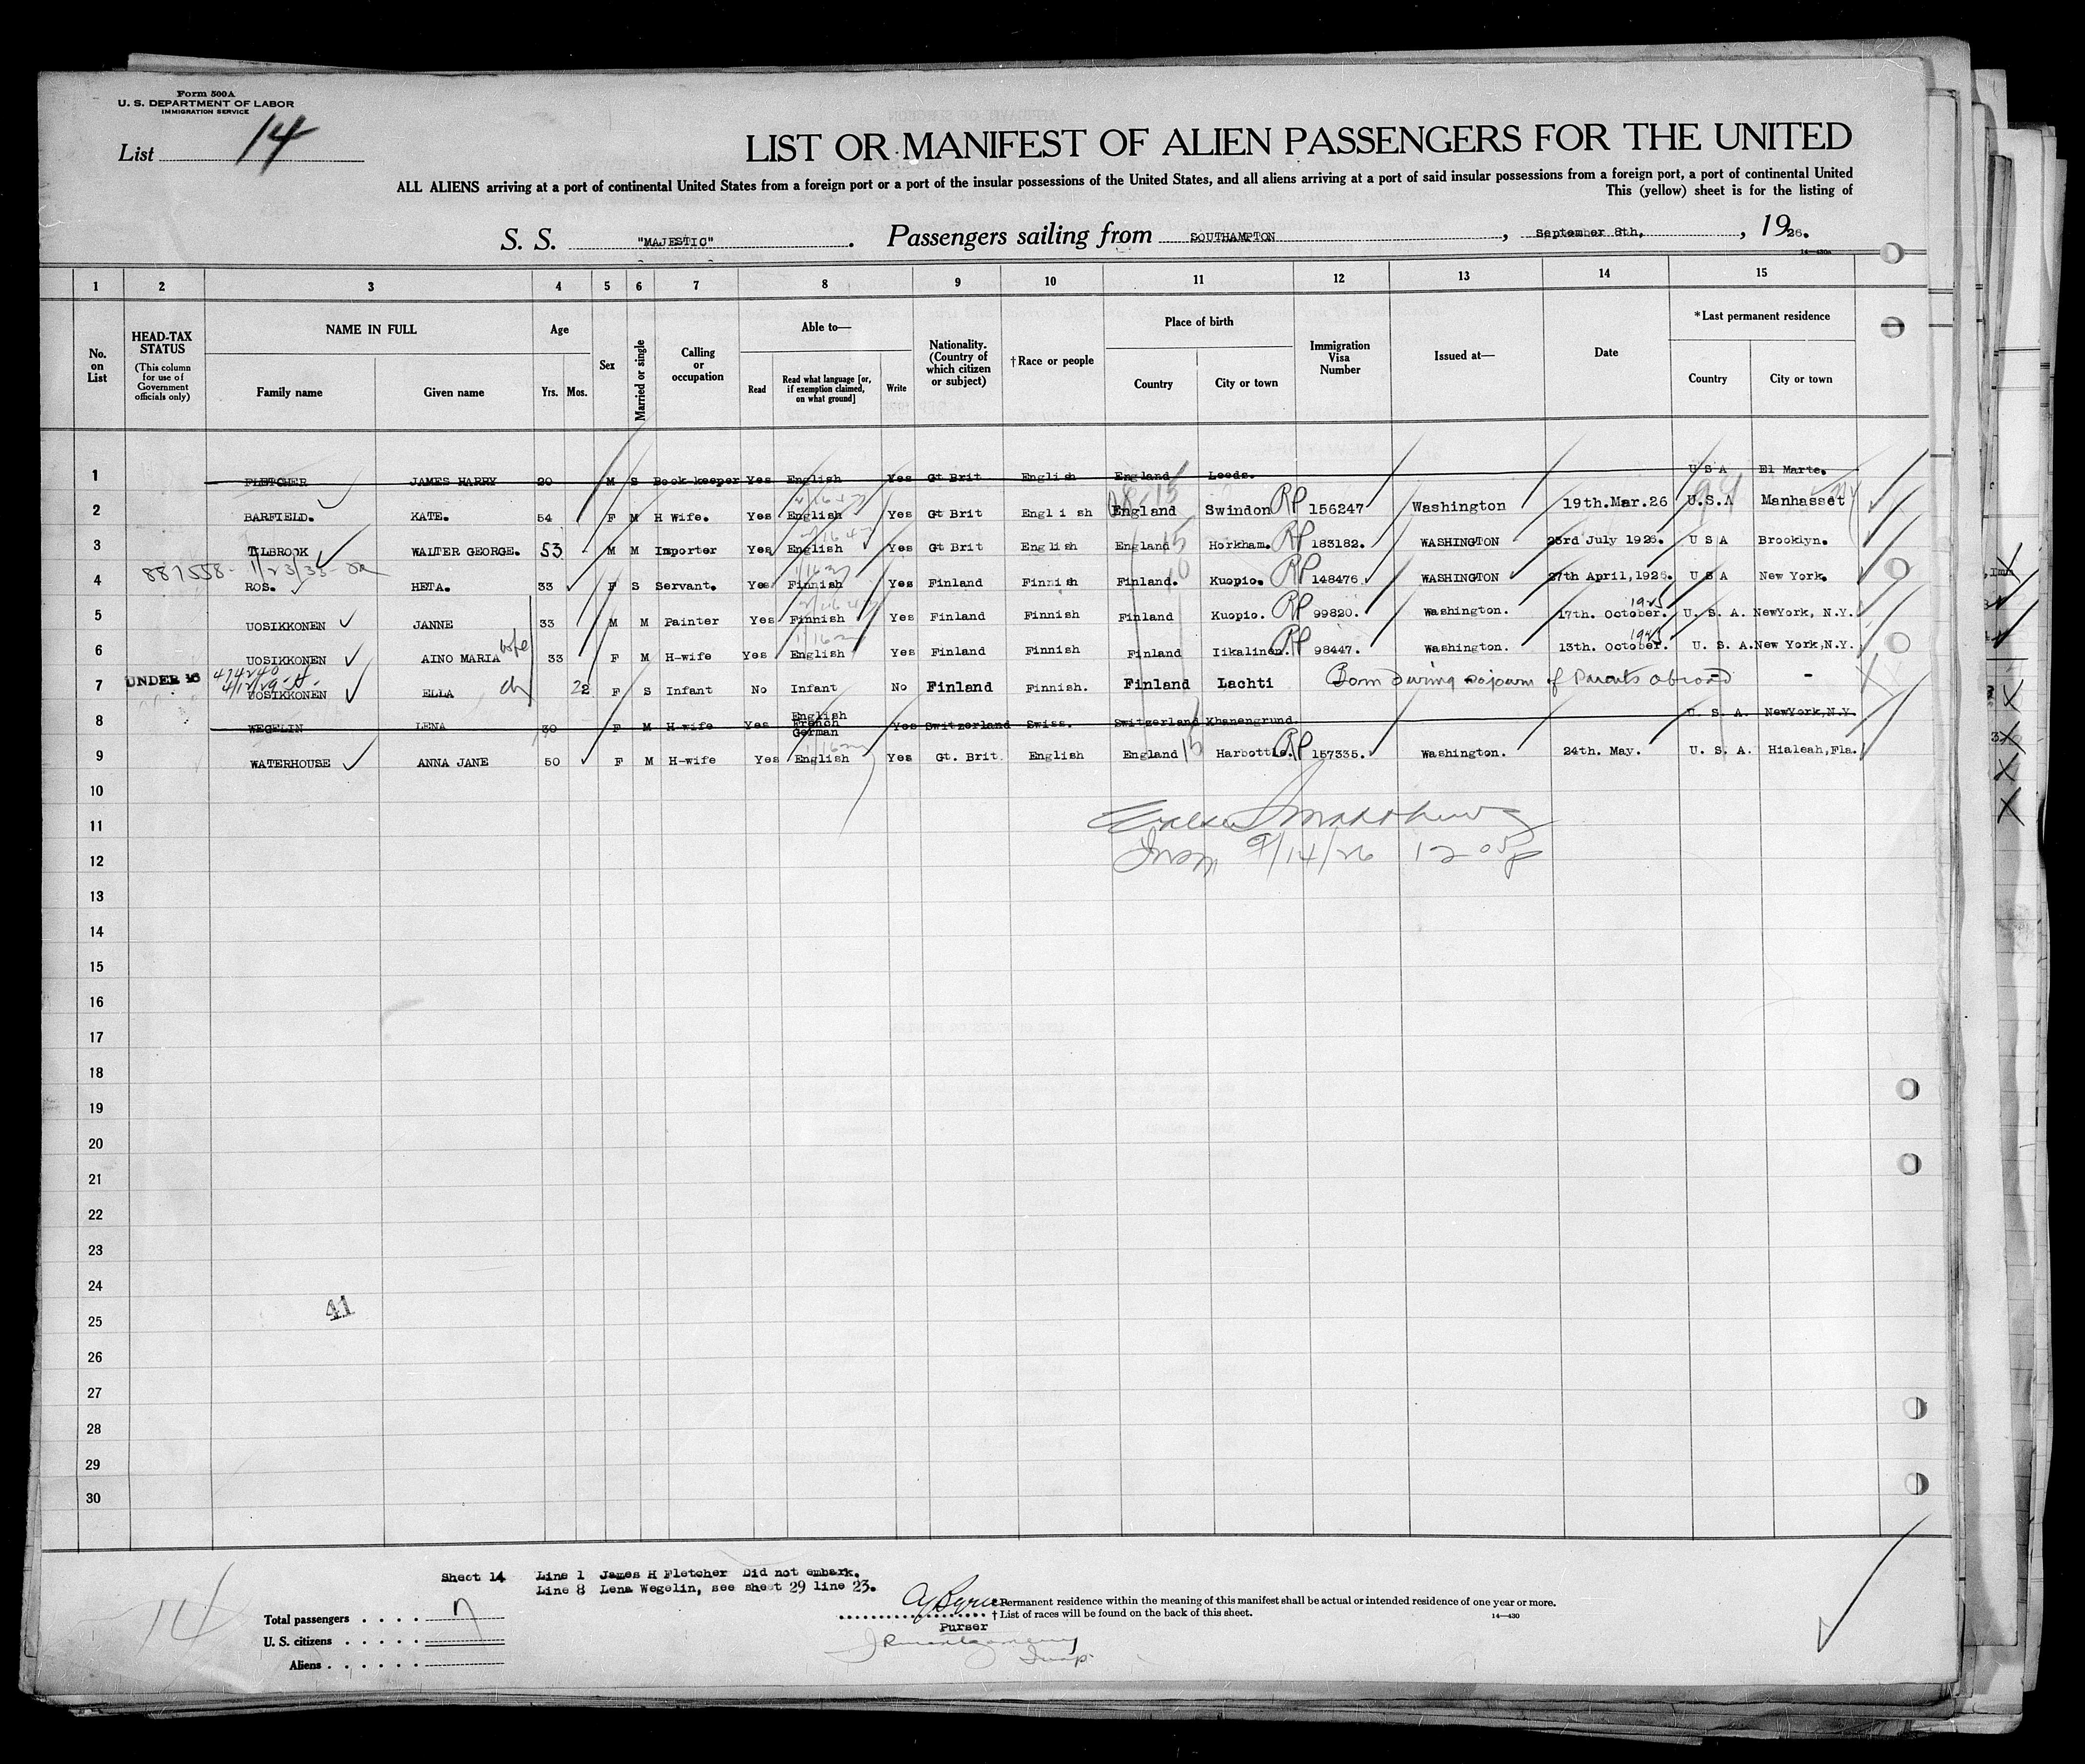 Form 500A
U. S. DEPARTMENT OF LABOR
IMMIGRATION SERVICE
List 14
LIST OR MANIFEST OF ALIEN PASSENGERS FOR THE UNITED
ALL ALIENS arriving at a port of continental United States from a foreign port or a port of the insular possessions of the United States, and all aliens arriving at a port of said insular possessions from a foreign port, a port of continental United
This (yellow) sheet is for the listing of
S. S. "MAJESTIC". Passengers sailing from SOUTHAMPTON, September 8th, , 1926.
14—430a
1 2 3 4 5 6 7 8 9 10 11 12 13 14 15
No. on List
HEAD-TAX STATUS
(This column for use of Government officials only)
NAME IN FULL
Family name
Given name
Age
Yrs. Mos.
Sex
Married or single
Calling or occupation
Able to—
Read
Read what language [or, if exemption claimed, on what ground]
Write
Nationality. (Country of which citizen or subject)
†Race or people
Place of birth
Country
City or town
Immigration Visa Number
Issued at—
Date
*Last permanent residence
Country
City or town
1 FLETCHER JAMES HARRY 20 M S Book-keeper Yes English Yes Gt Brit English England Leeds. U S A El Marte.
2 BARFIELD. KATE. 54 F M H Wife. Yes English Yes Gt Brit English England Swindon RP 156247 Washington 19th.Mar.26 U.S.A Manhasset NY
3 TILBROOK WALTER GEORGE. 53 M M Importer Yes English Yes Gt Brit English England Horkham. RP 183182. WASHINGTON 23rd July 1926. U S A Brooklyn.
887558- 1/23/35
4 ROS. HETA. 33 F S Servant. Yes Finnish Yes Finland Finnish Finland. Kuopio. RP 148476 WASHINGTON 27th April,1926. U S A New York.
5 UOSIKKONEN JANNE 33 M M Painter Yes Finnish Yes Finland Finnish Finland Kuopio. RP 99820. Washington. 17th. October. 1925 U. S. A. NewYork, N.Y.
6 UOSIKKONEN AINO MARIA wife 33 F M H-wife Yes English Yes Finland Finnish Finland Iikalinen. RP 98447. Washington. 13th. October. 1925 U. S. A. New York,N.Y.
474240
4/12/29
7 UNDER 16 UOSIKKONEN ELLA ch 22 F S Infant No Infant No Finland Finnish. Finland Lachti Born during sojourn of Parents abroad - -
8 WEGELIN LENA 30 F M H-wife Yes English French German Yes Switzerland Swiss. Switzerland Khanengrund. U. S. A. NewYork,N.Y.
9 WATERHOUSE ANNA JANE 50 F M H-wife Yes English Yes Gt. Brit English England Harbottle. RP 157335. Washington. 24th. May. U. S. A. Hialeah,Fla.
10
11
Insp 9/14/26 12 05p
12
13
14
15
16
17
18
19
20
21
22
23
24
41
25
26
27
28
29
30
Sheet 14 Line 1 James H Fletcher Did not embark.
Line 8 Lena Wegelin, see sheet 29 line 23.
14
Total passengers . . . . 7
U. S. citizens . . . . .
Aliens . . . . . .
Purser
Insp.
*Permanent residence within the meaning of this manifest shall be actual or intended residence of one year or more.
† List of races will be found on the back of this sheet.
14—430